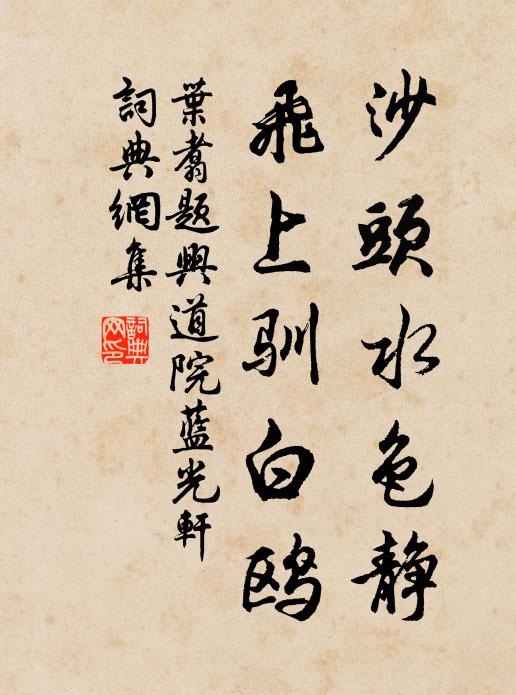 沙頭水色静
飛上馴白鷗
葉翥題興道院藍光軒
詞典網集
詞典
网印